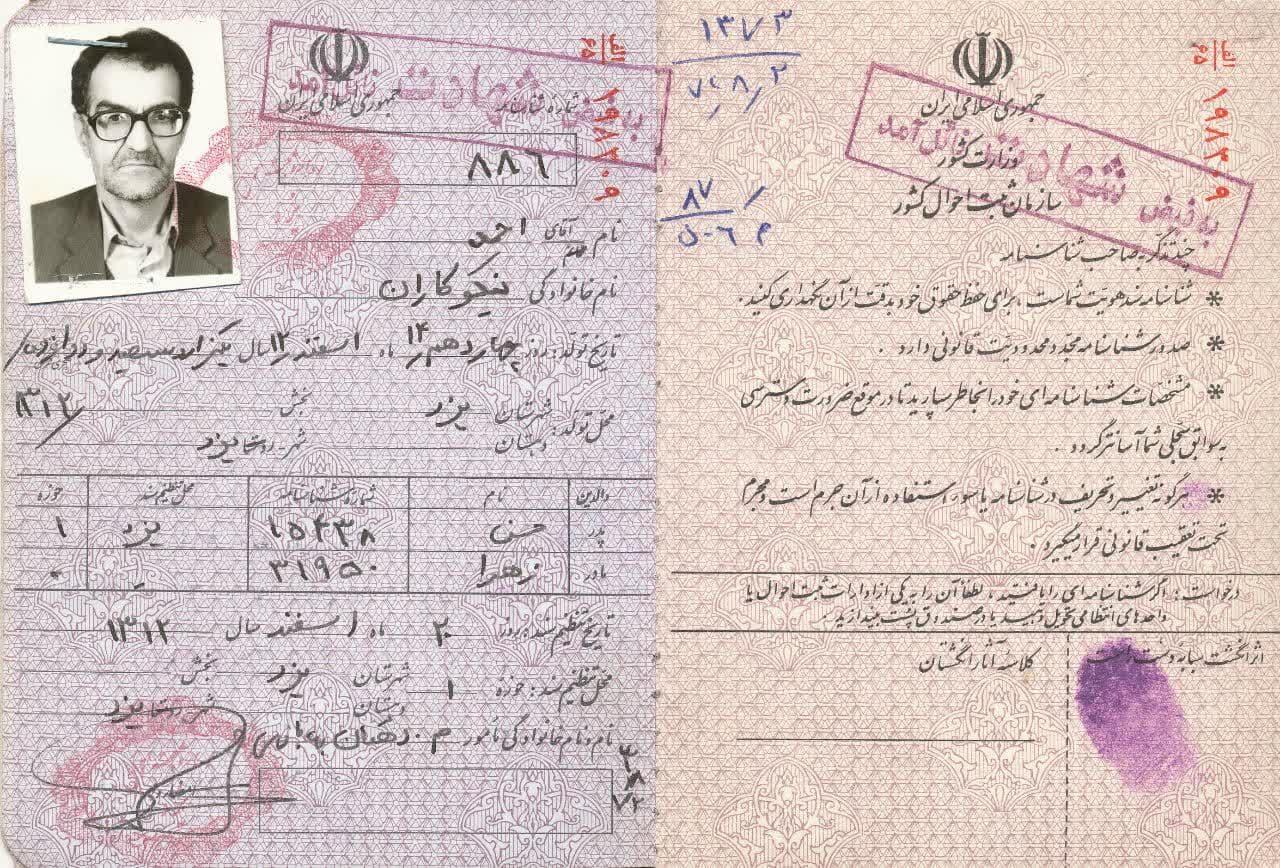 الف
۶۵
۱۹۸۳۰۹
جمهوری اسلامی ایران
وزارت کشور
سازمان ثبت احوال کشور
به فیض شهادت نائل آمد
چند تذکر به صاحب شناسنامه
* شناسنامه سند هویت شماست ، برای حفظ حقوقی خود بدقت از آن نگهداری کنید .
* صدور شناسنامه مجدد محدودیت قانونی دارد .
* مشخصات شناسنامه ای خود را بخاطر بسپارید تا در موقع ضرورت دسترسی
به سوابق سجلی شما آسانتر گردد .
* هرگونه تغییر و تحریف در شناسنامه یا سوء استفاده از آن جرم است و مجرم
تحت تعقیب قانونی قرار میگیرد .
درخواست : اگر شناسنامه ای را یافتید ، لطفاً آن را به یکی از ادارات ثبت احوال یا
واحدهای انتظامی تحویل دهید یا در صندوق پست بیندازید .
اثر انگشت سبابه دست راست
کلاسه آثار انگشتان
۱۳۷۳
۸۷
۵۰۶ م
الف
۶۵
۱۹۸۳۰۹
جمهوری اسلامی ایران
به فیض شهادت نائل آمد
شماره شناسنامه
۸۸۶
نام آقای خانم احمد
نام خانوادگی نیکوکاران
تاریخ تولد : روز چهاردهم ۱۴ ماه اسفند ۱۲ سال یکهزار سیصد و دوازده
۱۳۱۲
محل تولد : شهرستان یزد بخش
دهستان شهر روستا یزد
والدین نام شماره شناسنامه محل تنظیم سند حوزه
پدر حسن ۱۵۴۳۸ یزد ۱
مادر زهرا ۳۱۹۵۰ - -
تاریخ تنظیم سند : روز ۲۰ ماه اسفند سال ۱۳۱۲
محل تنظیم سند : حوزه ۱ شهرستان یزد بخش
دهستان شهر روستا یزد
نام و نام خانوادگی مأمور م . دهقان